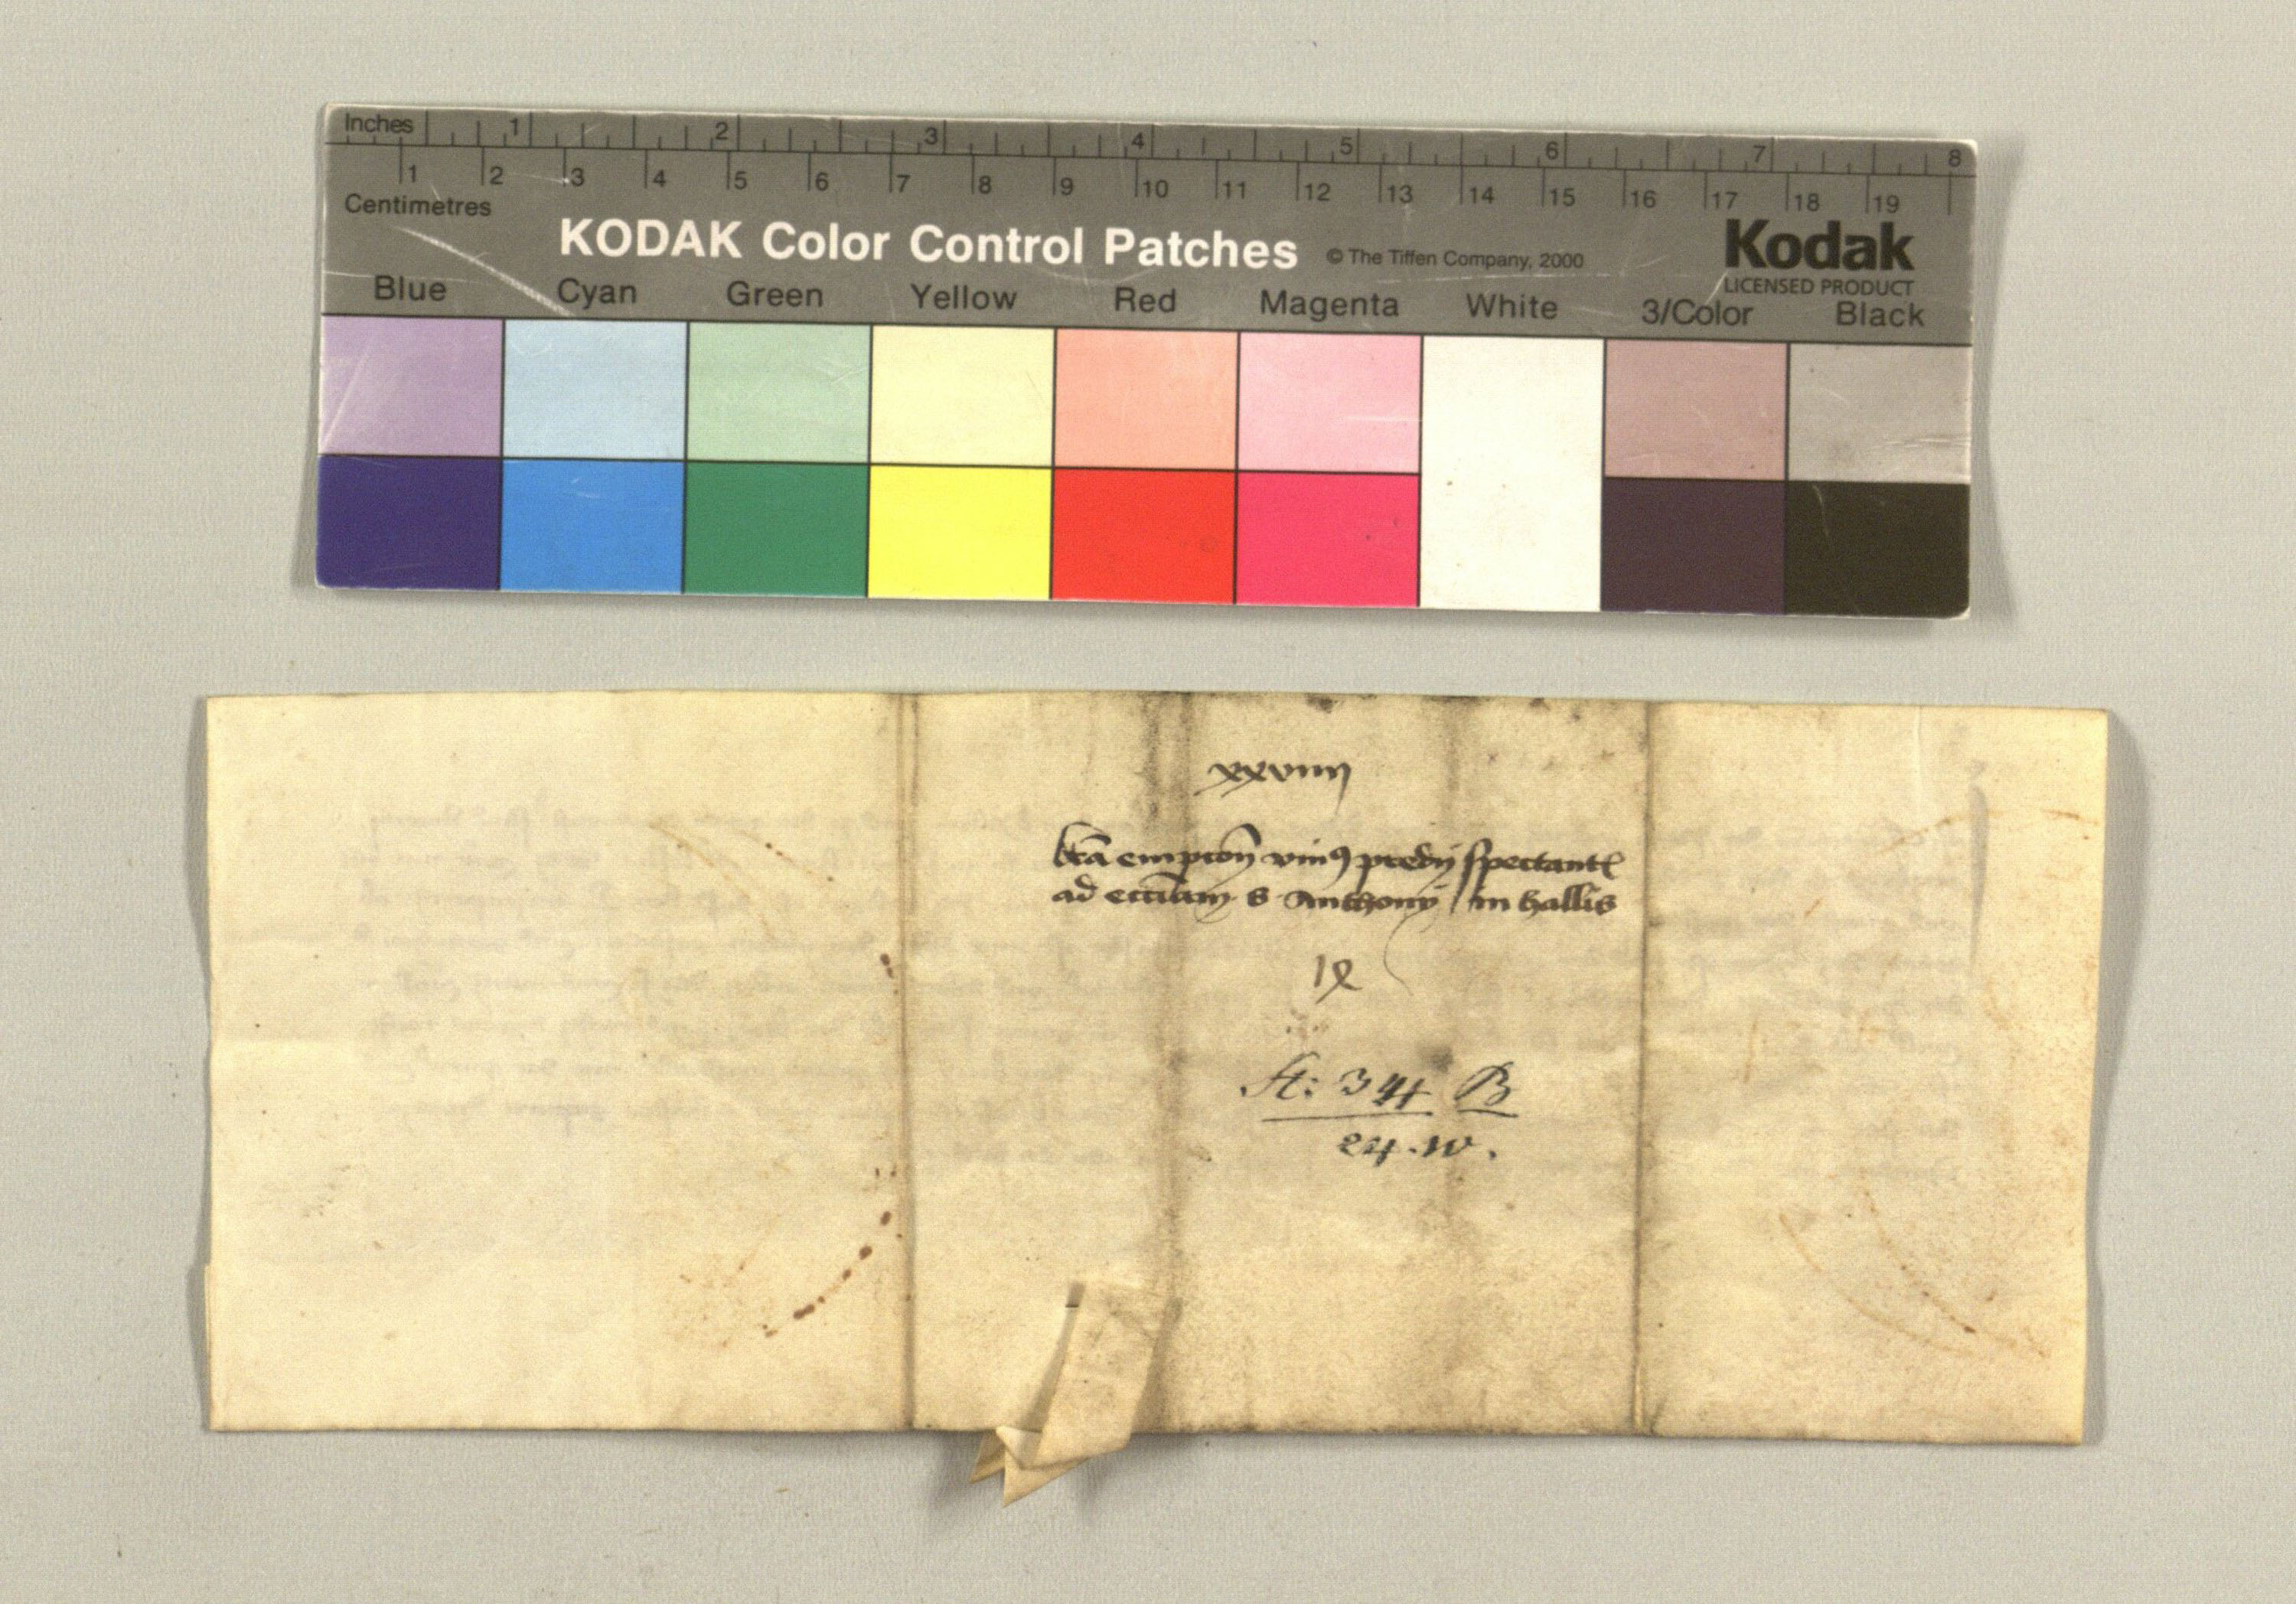 Inches 1 2 3 4 5 6 7 8
1 2 3 4 5 6 7 8 9 10 11 12 13 14 15 16 17 18 19
Centimetres
KODAK Color Control Patches © The Tiffen Company, 2000 Kodak
LICENSED PRODUCT
Blue Cyan Green Yellow Red Magenta White 3/Color Black
xxviiij
empcoñ spectant
ad eccliam S Anthonij in hallis
IX
St: 344 B
24. W.